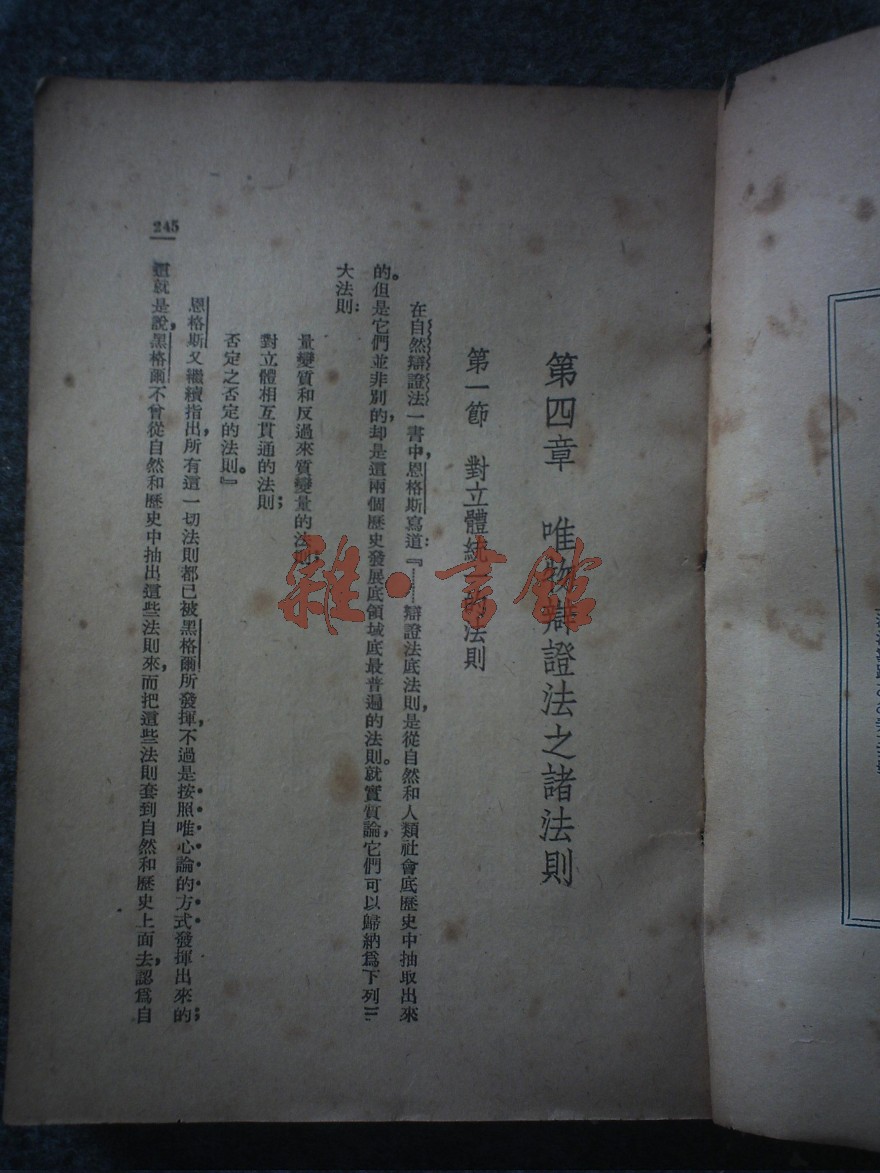 第四章　唯物辯證法之諸法則
第一節　對立體統一的法則
在自然辯證法一書中，恩格斯寫道：『……辯證法底法則，是從自然和人類社會底歷史中抽取出來
的。但是它們並非別的，却是這兩個歷史發展底領域底最普遍的法則。就實質論，它們可以歸納爲下列三
大法則：
量變質和反過來質變量的法則；
對立體相互貫通的法則；
否定之否定的法則。』
恩格斯又繼續指出，所有這一切法則都已被黑格爾所發揮，不過是按照唯心論的方式發揮出來的；
這就是說，黑格爾不曾從自然和歷史中抽出這些法則來，而把這些法則套到自然和歷史上面去，認爲自
245
雜·書館